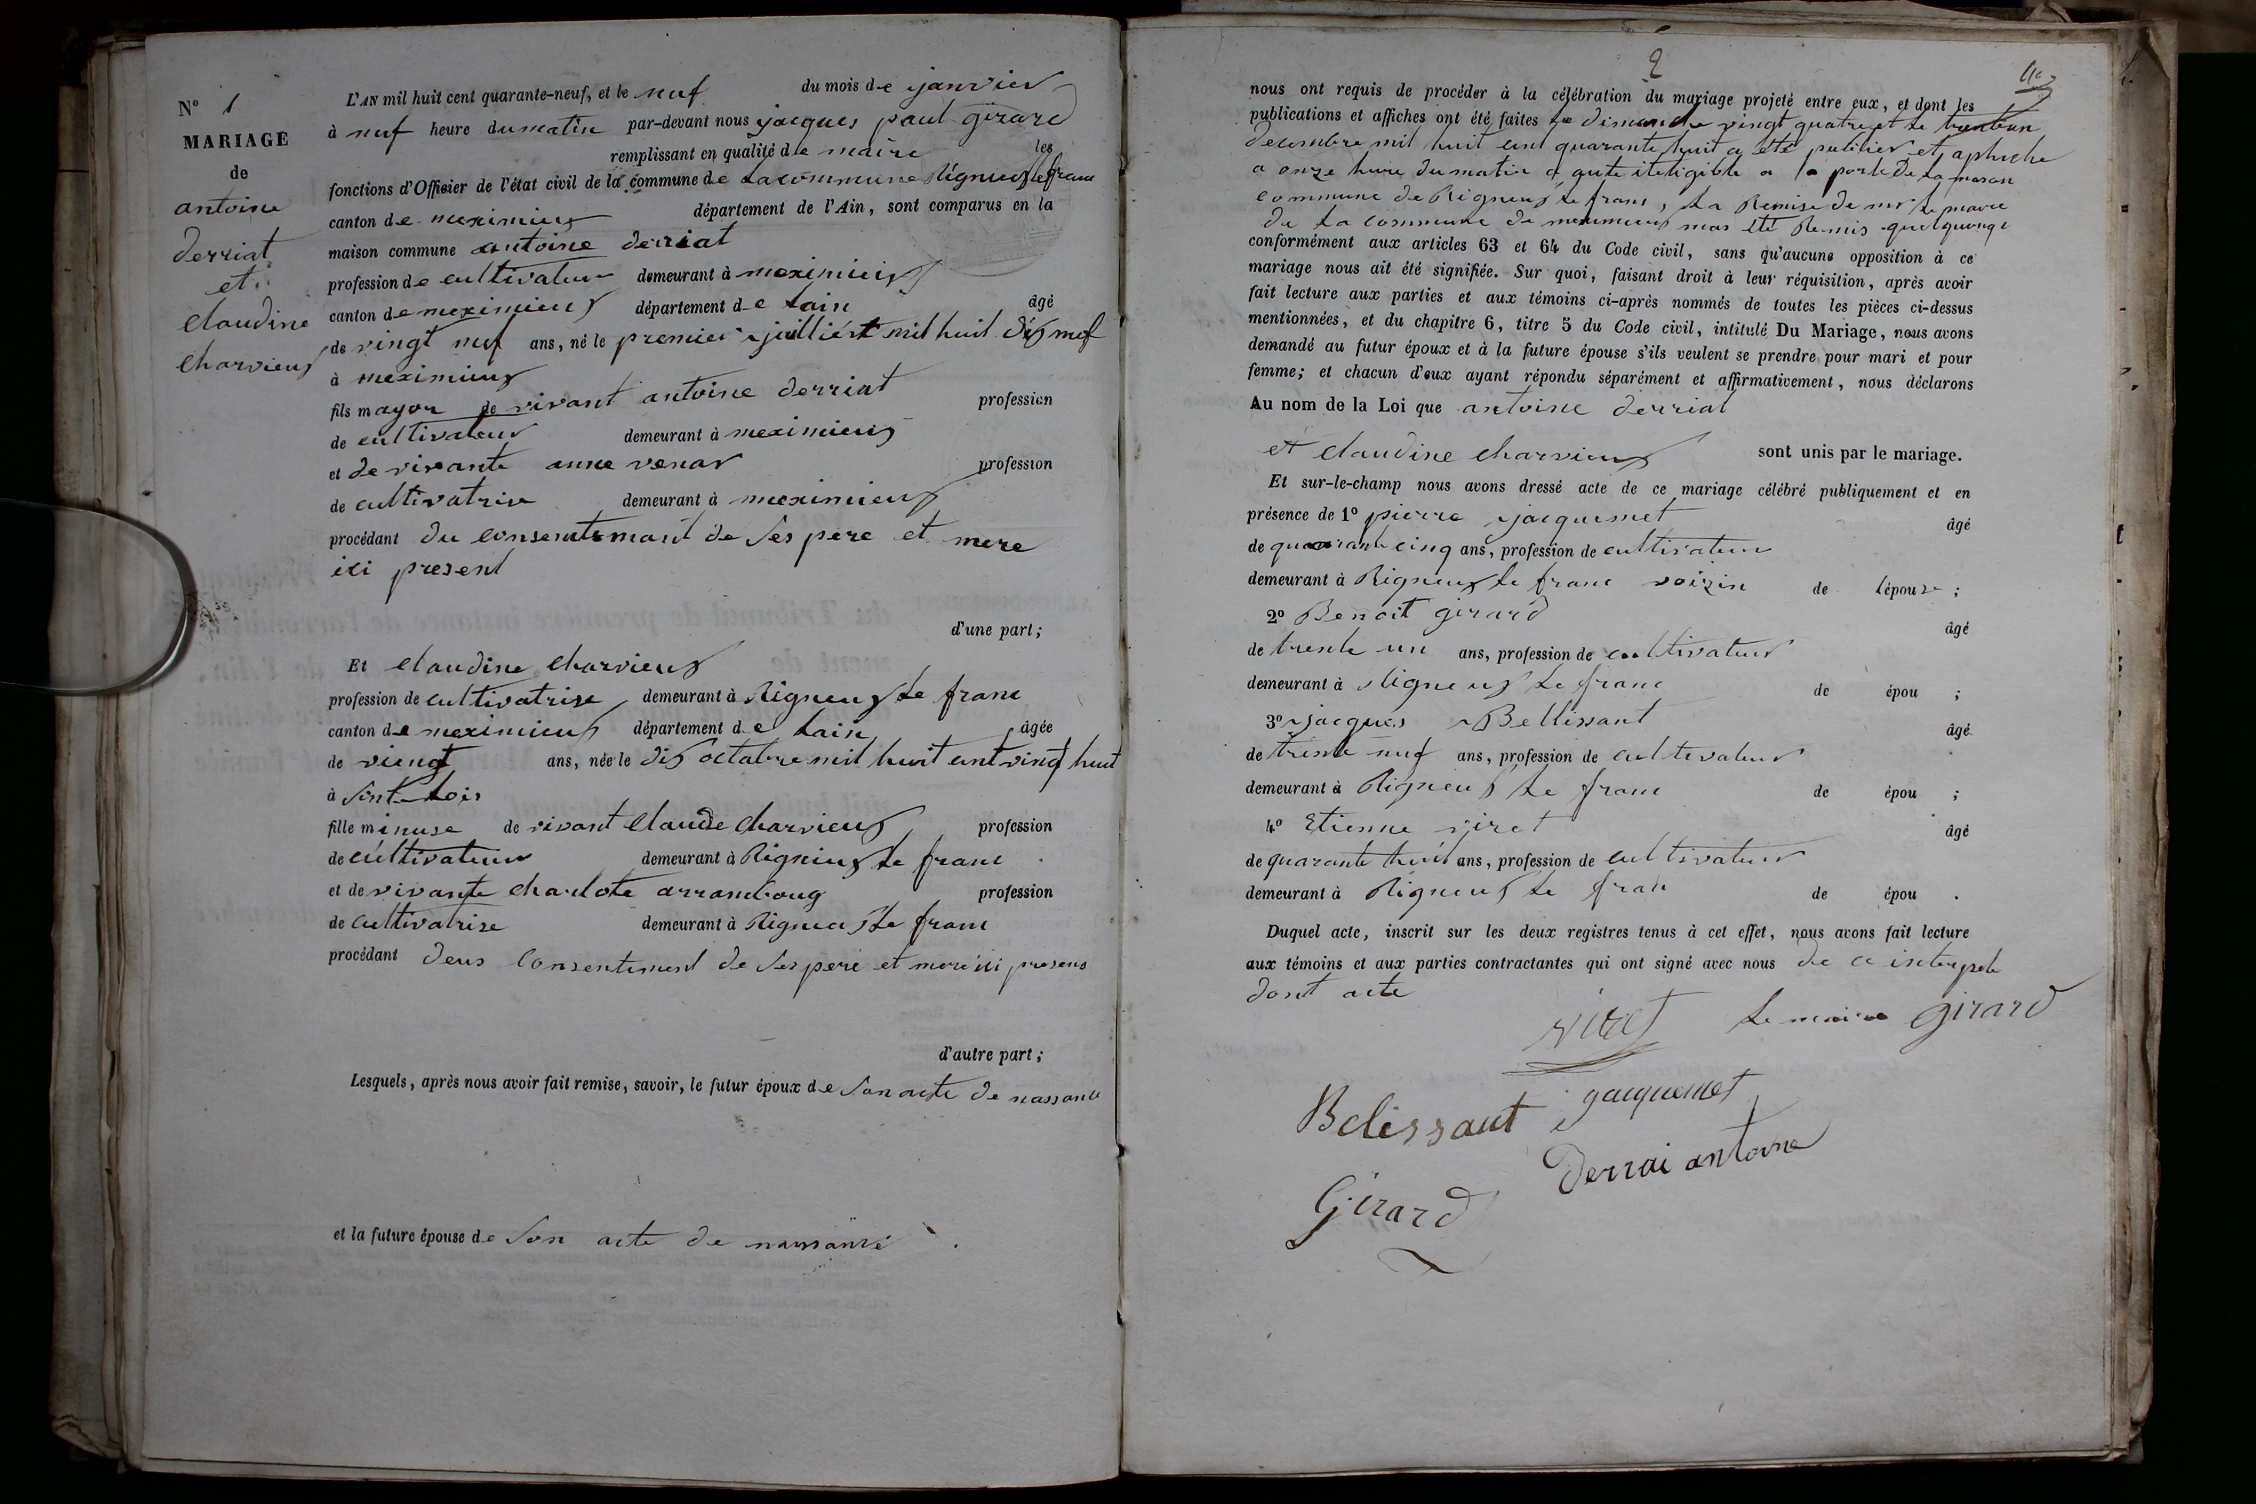 N° 1
MARIAGE
de
antoine
derriat
et
Claudine
Charvieux
L'AN mil huit cent quarante-neuf, et le neuf du mois de janvier
à neuf heure du matin par-devant nous jacques paul girard
remplissant en qualité de maire les
fonctions d'Officier de l'état civil de la commune de La commune Rigneux le franc
canton de meximieux département de l'Ain, sont comparus en la
maison commune antoine derriat
profession de cultivateur demeurant à meximieux
canton de meximieux département de Lain âgé
de vingt neuf ans, né le premier juilliért mil huit dix nef
à meximieux
fils mayeur de vivant antoine derriat profession
de cultivateur demeurant à meximieux
et de vivante anne venar profession
de cultivatrise demeurant à meximieux
procédant du consentemant de Ses pere et mere
ici present
d'une part;
Et Claudine Charvieux
profession de cultivatrise demeurant à Rigneux Le franc
canton de meximieux département de Lain âgée
de viengt ans, née le dix octabre mil huit cent vingt huit
à Sinte Lois
fille minuse de vivant Claude Charvieux profession
de cultivateur demeurant à Rignieux Le franc
et de vivante Charlote arramboug profession
de cultivatrise demeurant à Rigneux Le franc
procédant deus Consentiment de Ses pere et mere ici presens
d'autre part;
Lesquels, après nous avoir fait remise, savoir, le futur époux de Son acte de nassance
et la future épouse de Son acte de naissansé
2
nous ont requis de procéder à la célébration du mariage projeté entre eux, et dont les
publications et affiches ont été faites Le dimanche vingt quatre et Le trantun
decembre mil huit cent quarante huit a été publier et aphiche
a onze heure du matin a la porte de La maison
commune de Rigneux Le franc, La Remise de mr Le maire
de La commune de meximieux mas été Remis quelquonqe
conformément aux articles 63 et 64 du Code civil, sans qu'aucune opposition à ce
mariage nous ait été signifiée. Sur quoi, faisant droit à leur réquisition, après avoir
fait lecture aux parties et aux témoins ci-après nommés de toutes les pièces ci-dessus
mentionnées, et du chapitre 6, titre 5 du Code civil, intitulé Du Mariage, nous avons
demandé au futur époux et à la future épouse s'ils veulent se prendre pour mari et pour
femme; et chacun d'eux ayant répondu séparément et affirmativement, nous déclarons
Au nom de la Loi que antoine derriat
et Claudine Charvieux sont unis par le mariage.
Et sur-le-champ nous avons dressé acte de ce mariage célébré publiquement et en
présence de 1° pierre jacquemet âgé
de quarante cinq ans, profession de cultivateur
demeurant à Rigneux Le franc voizin de Lépouse ;
2° Benoit girard âgé
de trente un ans, profession de cultivateur
demeurant à Rigneux Le franc de épou ;
3° jacques Bellissant âgé
de trente neuf ans, profession de cultivateur
demeurant à Rigneux Le franc de épou ;
4° Etienne viret âgé
de quarante huit ans, profession de cultivateur
demeurant à Rigneux Le fran de épou .
Duquel acte, inscrit sur les deux registres tenus à cet effet, nous avons fait lecture
aux témoins et aux parties contractantes qui ont signé avec nous de ce
dont acte
viret Le maire girard
Belissant jacquemet
Derriai antoine
Girard